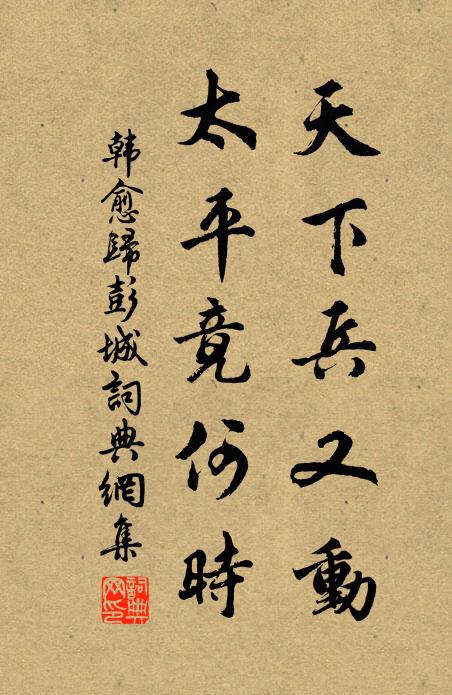 天下兵又動
太平竟何時
韓愈歸彭城詞典網集
詞典網印